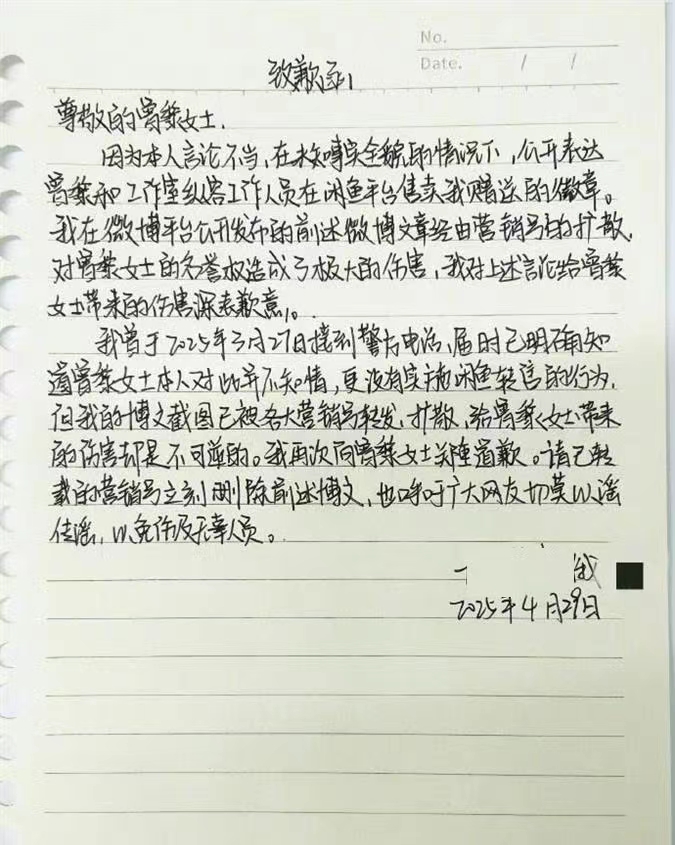 No.
Date. / /
致歉函
尊敬的曾黎女士,
因为本人言论不当,在未知事实全貌的情况下,公开表达
曾黎和工作室纵容工作人员在闲鱼平台售卖我赠送的徽章。
我在微博平台公开发布的前述微博文章经由营销号的扩散,
对曾黎女士的名誉权造成了极大的伤害,我对上述言论给曾黎
女士带来的伤害深表歉意。
我曾于2025年3月27日接到警方电话,届时已明确知
道曾黎女士本人对此并不知情,更没有实施闲鱼转卖的行为,
但我的博文截图已被各大营销号转发、扩散,给曾黎女士带来
的伤害却是不可逆的。我再次向曾黎女士郑重道歉。请已转
载的营销号立刻删除前述博文,也呼吁广大网友切莫以谣
传谣,以免伤及无辜人员。
2025年4月29日